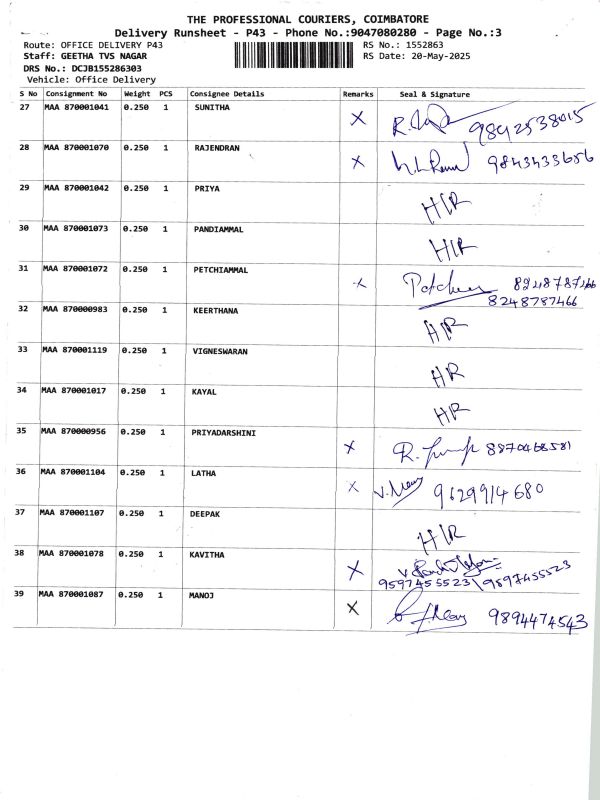 THE PROFESSIONAL COURIERS, COIMBATORE
Delivery Runsheet - P43 - Phone No.:9047080280 - Page No.:3
Route: OFFICE DELIVERY P43 RS No.: 1552863
Staff: GEETHA TVS NAGAR RS Date: 20-May-2025
DRS No.: DCJB155286303
Vehicle: Office Delivery
S No Consignment No Weight PCS Consignee Details Remarks Seal & Signature
27 MAA 870001041 0.250 1 SUNITHA X 9842538015
28 MAA 870001070 0.250 1 RAJENDRAN X 9843433656
29 MAA 870001042 0.250 1 PRIYA H/R
30 MAA 870001073 0.250 1 PANDIAMMAL H/R
31 MAA 870001072 0.250 1 PETCHIAMMAL X 8248787466
8248787466
32 MAA 870000983 0.250 1 KEERTHANA H/R
33 MAA 870001119 0.250 1 VIGNESWARAN H/R
34 MAA 870001017 0.250 1 KAYAL H/R
35 MAA 870000956 0.250 1 PRIYADARSHINI X 8870468581
36 MAA 870001104 0.250 1 LATHA X 9629914680
37 MAA 870001107 0.250 1 DEEPAK H/R
38 MAA 870001078 0.250 1 KAVITHA X
9597455523 9597455523
39 MAA 870001087 0.250 1 MANOJ X 9894474543